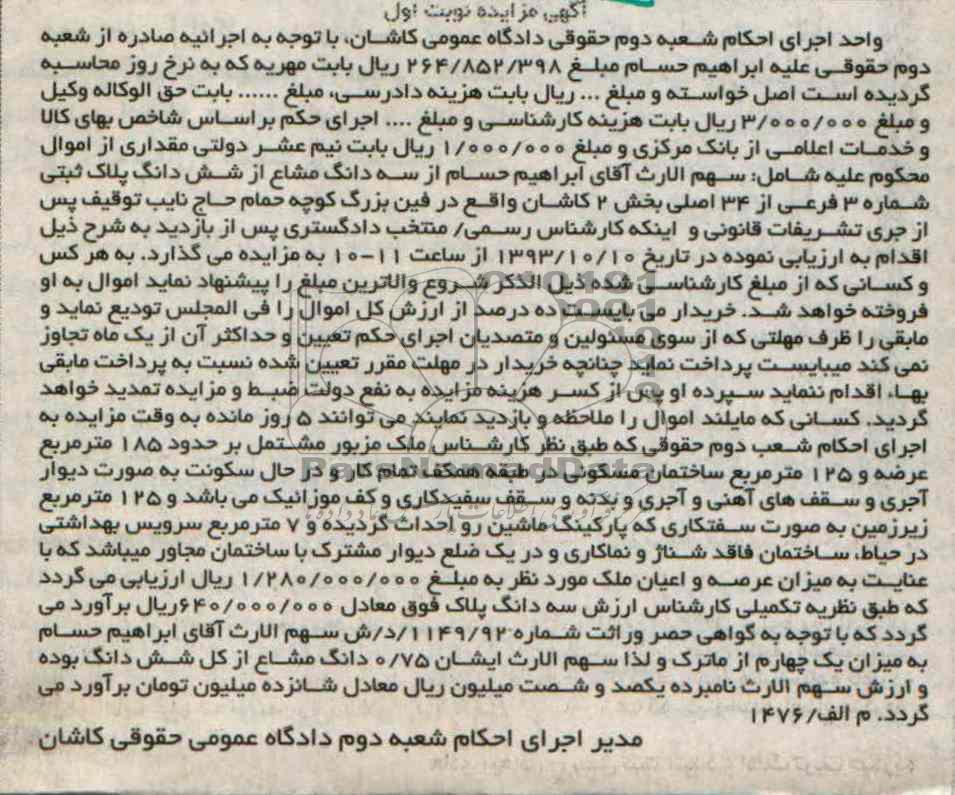 آگهی مزایده نوبت اول
واحد اجرای احکام شعبه دوم حقوقی دادگاه عمومی کاشان، با توجه به اجرائیه صادره از شعبه
دوم حقوقی علیه ابراهیم حسام مبلغ ۲۶۴/۸۵۲/۳۹۸ ریال بابت مهریه که به نرخ روز محاسبه
گردیده است اصل خواسته و مبلغ ... ریال بابت هزینه دادرسی، مبلغ ...... بابت حق الوکاله وکیل
و مبلغ ۳/۰۰۰/۰۰۰ ریال بابت هزینه کارشناسی و مبلغ .... اجرای حکم بر اساس شاخص بهای کالا
و خدمات اعلامی از بانک مرکزی و مبلغ ۱/۰۰۰/۰۰۰ ریال بابت نیم عشر دولتی مقداری از اموال
محکوم علیه شامل: سهم الارث آقای ابراهیم حسام از سه دانگ مشاع از شش دانگ پلاک ثبتی
شماره ۳ فرعی از ۳۴ اصلی بخش ۲ کاشان واقع در فین بزرگ کوچه حمام حاج نایب توقیف پس
از جری تشریفات قانونی و اینکه کارشناس رسمی/ منتخب دادگستری پس از بازدید به شرح ذیل
اقدام به ارزیابی نموده در تاریخ ۱۳۹۳/۱۰/۱۰ از ساعت ۱۱-۱۰ به مزایده می گذارد. به هر کس
و کسانی که از مبلغ کارشناسی شده ذیل الذکر شروع والاترین مبلغ را پیشنهاد نماید اموال به او
فروخته خواهد شد. خریدار می بایست ده درصد از ارزش کل اموال را فی المجلس تودیع نماید و
مابقی را ظرف مهلتی که از سوی مسئولین و متصدیان اجرای حکم تعیین و حداکثر آن از یک ماه تجاوز
نمی کند میبایست پرداخت نماید چنانچه خریدار در مهلت مقرر تعیین شده نسبت به پرداخت مابقی
بها، اقدام ننماید سپرده او پس از کسر هزینه مزایده به نفع دولت ضبط و مزایده تمدید خواهد
گردید. کسانی که مایلند اموال را ملاحظه و بازدید نمایند می توانند ۵ روز مانده به وقت مزایده به
اجرای احکام شعب دوم حقوقی که طبق نظر کارشناس ملک مزبور مشتمل بر حدود ۱۸۵ مترمربع
عرضه و ۱۲۵ مترمربع ساختمان مسکونی در طبقه همکف تمام کار و در حال سکونت به صورت دیوار
آجری و سقف های آهنی و آجری و بدنه و سقف سفیدکاری و کف موزائیک می باشد و ۱۲۵ مترمربع
زیرزمین به صورت سفتکاری که پارکینگ ماشین رو احداث گردیده و ۷ مترمربع سرویس بهداشتی
در حیاط، ساختمان فاقد شناژ و نماکاری و در یک ضلع دیوار مشترک با ساختمان مجاور میباشد که با
عنایت به میزان عرصه و اعیان ملک مورد نظر به مبلغ ۱/۲۸۰/۰۰۰/۰۰۰ ریال ارزیابی می گردد
که طبق نظریه تکمیلی کارشناس ارزش سه دانگ پلاک فوق معادل ۶۴۰/۰۰۰/۰۰۰ریال برآورد می
گردد که با توجه به گواهی حصر وراثت شماره ۱۱۴۹/۹۲/د/ش سهم الارث آقای ابراهیم حسام
به میزان یک چهارم از ماترک و لذا سهم الارث ایشان ۰/۷۵ دانگ مشاع از کل شش دانگ بوده
و ارزش سهم الارث نامبرده یکصد و شصت میلیون ریال معادل شانزده میلیون تومان برآورد می
گردد. م الف/۱۴۷۶
مدیر اجرای احکام شعبه دوم دادگاه عمومی حقوقی کاشان